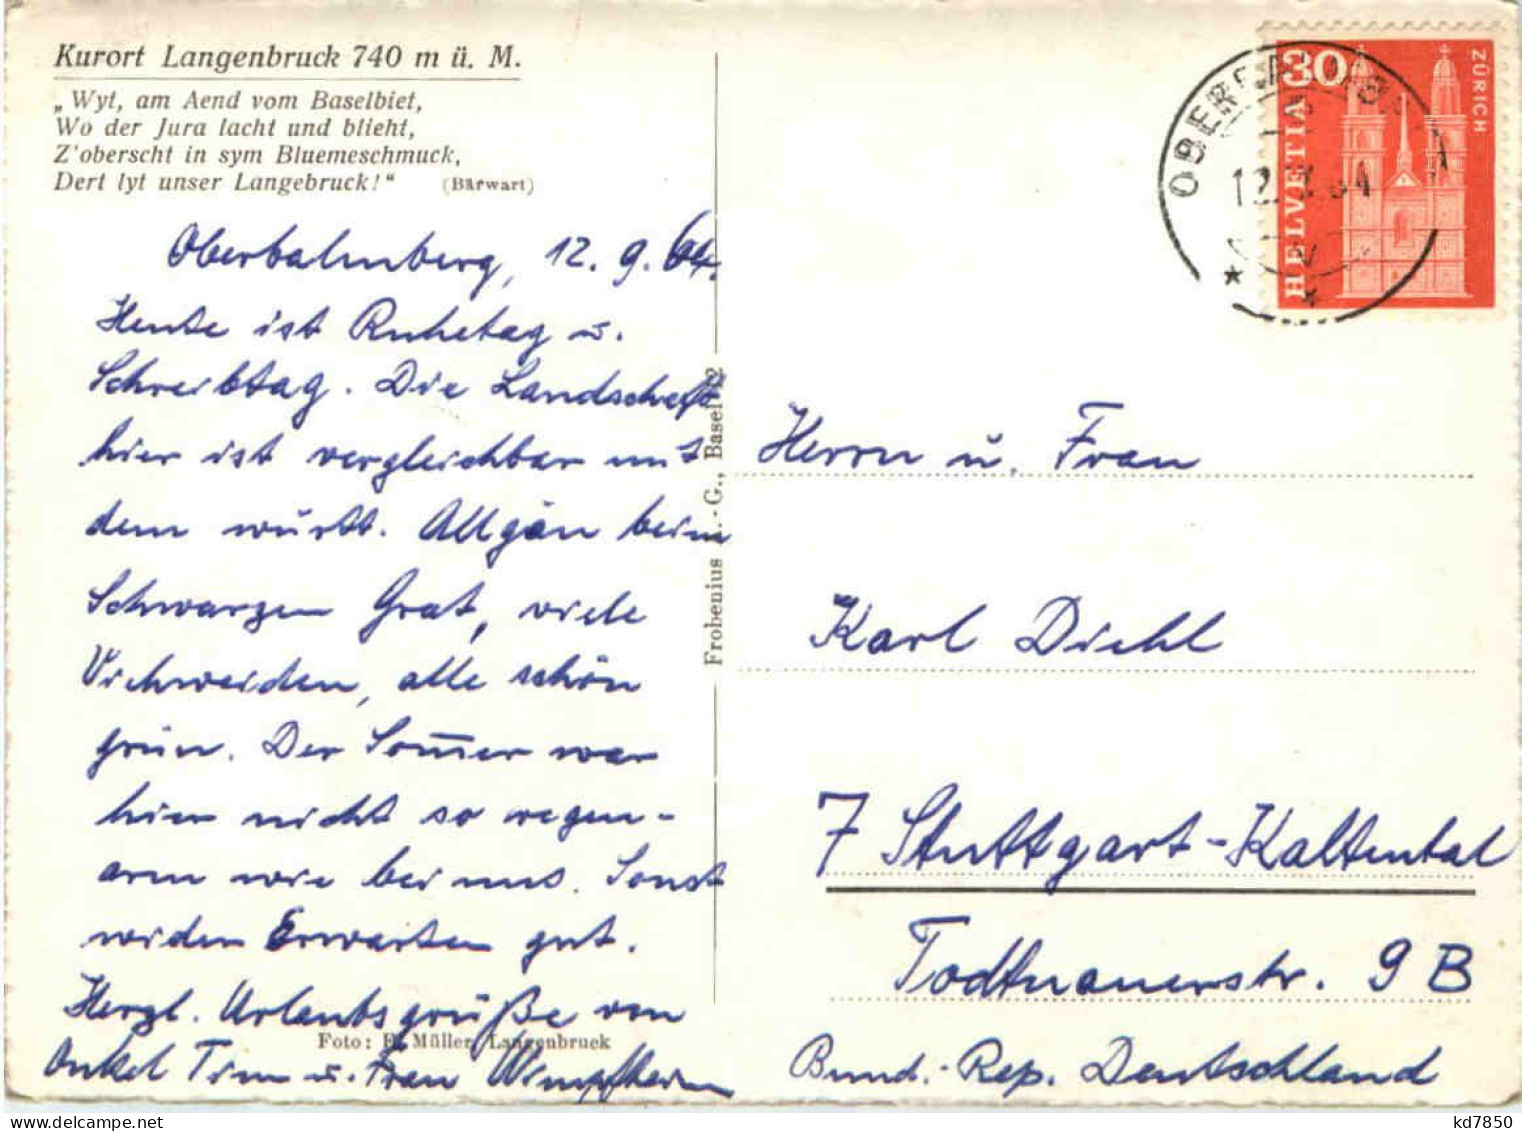 Kurort Langenbruck 740 m ü. M.
„Wyt, am Aend vom Baselbiet,
Wo der Jura lacht und blieht,
Z'oberscht in sym Bluemeschmuck,
Dert lyt unser Langebruck!" (Bärwart)
Oberbalmberg, 12. 9. 64.
Heute ist Ruhetag u.
Schreibtag. Die Landschaft
hier ist vergleichbar mit
dem württ. Allgäu beim
Schwarzen Grat, viele
Viehweiden, alle schön
grün. Der Som̅er war
hier nicht so regen-
arm wie bei uns. Sonst
wider Erwarten gut.
Herzl. Urlaubsgrüße von
Onkel Tim u. Frau Wimpfheim
Foto: Müller, Langenbruck
Frobenius A.-G., Basel 12
HELVETIA
30
ZÜRICH
12. 64
Herrn u. Frau
Karl Diehl
7 Stuttgart-Kaltental
Todtnauerstr. 9 B
Bund.-Rep. Deutschland
kd7850